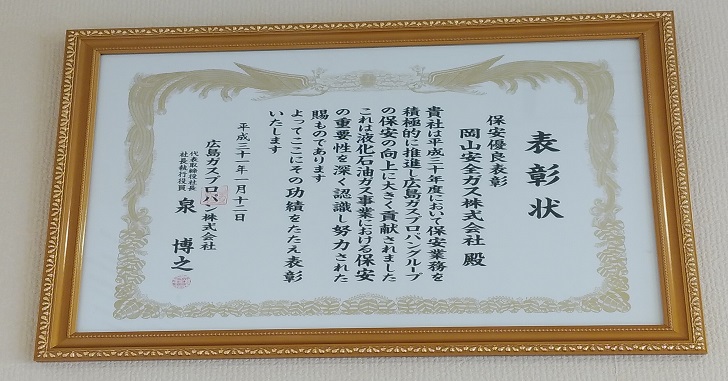 表彰状
保安優良表彰
岡山安全ガス株式会社 殿
貴社は平成三十年度において保安業務を
積極的に推進し広島ガスプロパングループ
の保安の向上に大きく貢献されました
これは液化石油ガス事業における保安
の重要性を深く認識し努力された
賜ものであります
よってここにその功績をたたえ表彰
いたします
平成三十一年一月十二日
広島ガスプロパン株式会社
代表取締役社長
社長執行役員
泉 博之